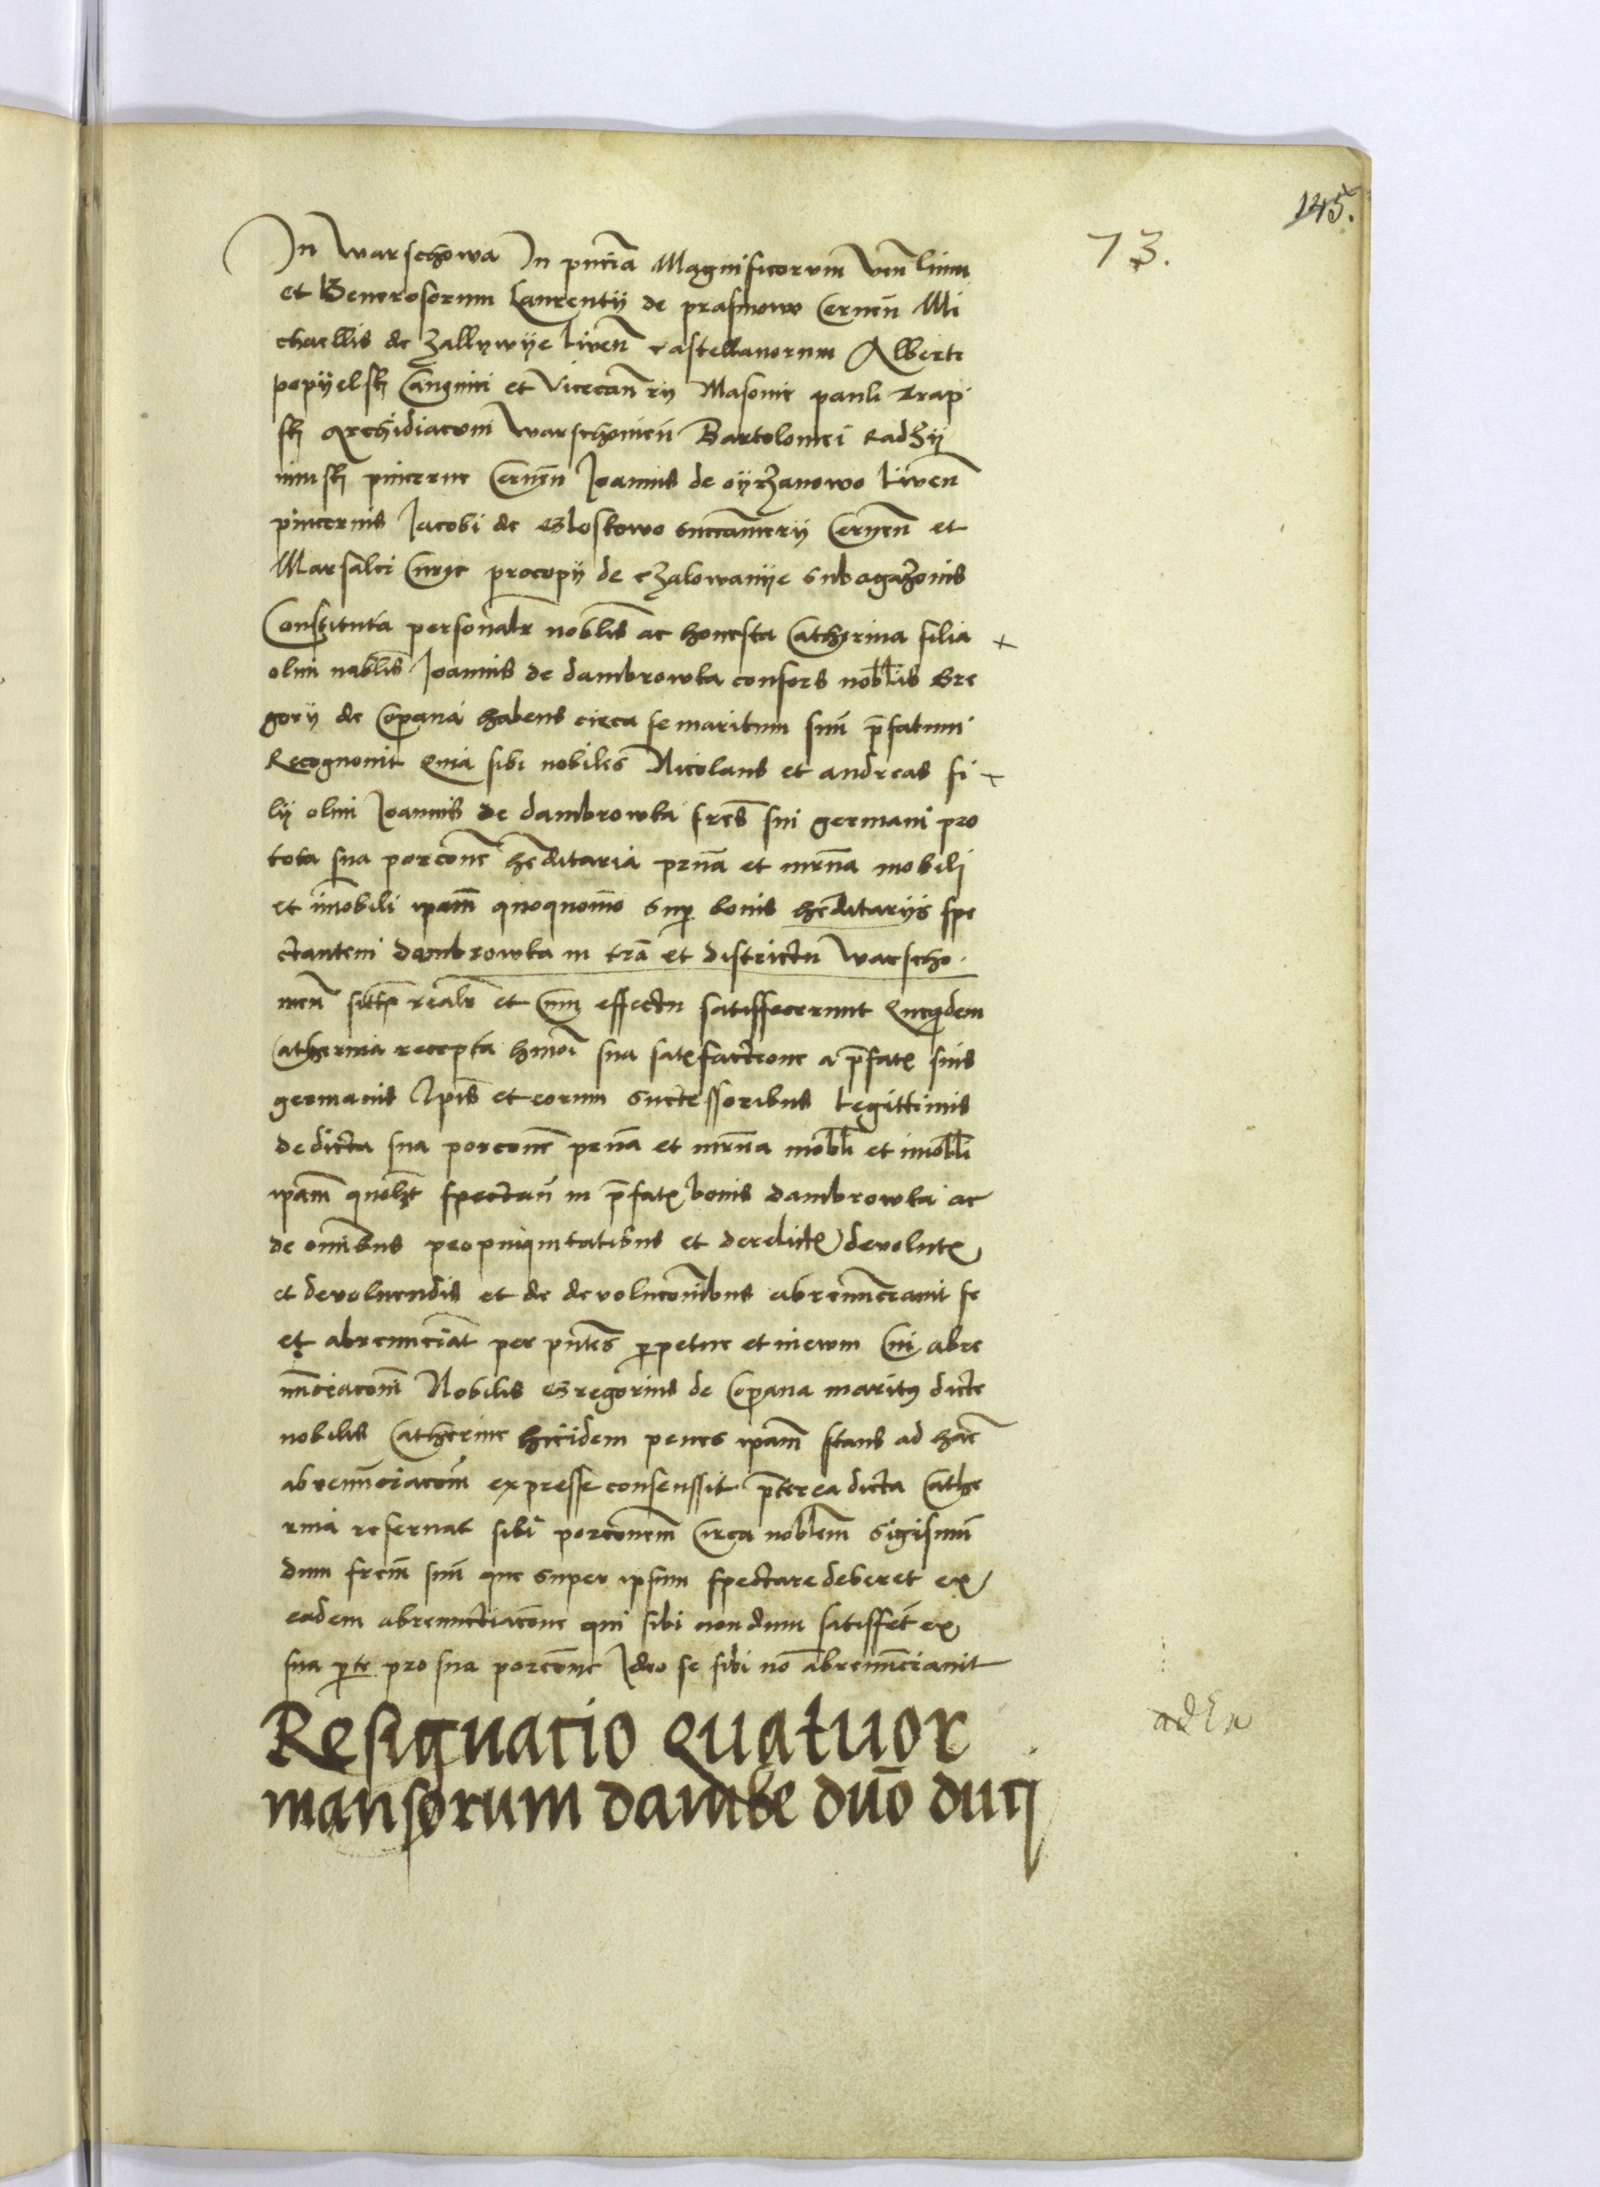 145.
73.
In Warschowa In pñcia Magnificorum Veñlium
et Generosorum Laurentij de prasmow Cerneñ Mi
chaellis de Zallywye Liveñ castellanorum Alberti
popyelsk Canonici et Vicecañrij Masovie pauli zrapi
sk Archidiaconi Warschovieñ Bartolomei Radzij
munsk pincerne Cerneñ Joannis de oyrzanowo Liveñ
pincernis Jacobi de Gloskowo succamerij Cerneñ et
Marsalci Curie procopij de czalowanije subagazonis
Constituta personalr noblis ac honesta Catherina filia
olim nablis Joannis de dambrowka consors nobllis Gre
gorij de Coprana habens circa se maritum suũ p̃fatum
Recognovit Quia sibi nobiles Nicolaus et andreas fi
lij olim Joannis de dambrowka fres̃ sui germani pro
tota sua porcone hẽditaria pr̃na et mr̃na mobili
et im̃obili ipam̃ quoquomõ sup bonis hẽditarijs spe
ctantem dambrowka in trã et districtu Warscho
vieñ sitta realr̃ et Cum effectu satisfecerunt Quequidem
Catherina recepta hmõi sua satisfactione a p̃fatis suis
germanis Ipis̃ et eorum successoribus Legittimis
de dicta sua porcone pr̃na et mr̃na mobli et imobli
ipam̃ quolꝫt spectañ in p̃fatis bonis dambrowka ac
de omĩbus propinquitatibus et derelictis devolutis
et devoluendis et de devolucom̃bus abrenũcravit se
et abrenunciat per pñtes p̱petue et in ewm Cui abre
nũciaconi Nobilis Gregorius de Coprana maritꝰ dicte
nobilis Catherine hicidem penes ipam̃ stans ad hanc̃
abrenũciacom̃ expresse consenssit p̃terea dicta Cathe
rina reservat sibi porconem̃ Circa noblem̃ Sigismũ
dum frem̃ suũ que super ipsum spectare deberet ex
eadem abrenuctiacone qui sibi nondum satisfe͂t ex
sua parte pro sua porcone Ideo se sibi nõ abrenũciavit
Resignacio quatuor
mansorum dambe duõ duci